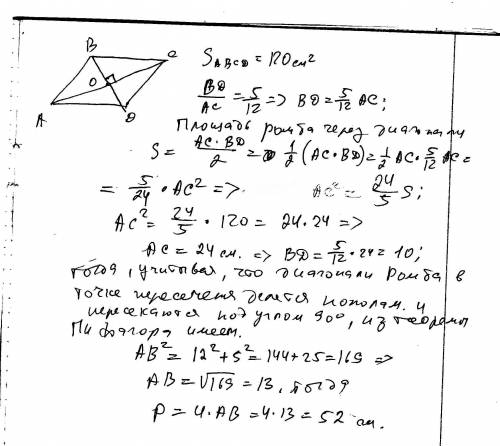 B C
O
A D
S_ABCD = 120 см²
BD/AC = 5/12 => BD = 5/12 AC;
Площадь ромба через диагонали
S = AC·BD/2 = 1/2 (AC·BD) = 1/2 AC · 5/12 AC =
= 5/24 · AC² => AC² = 24/5 S;
AC² = 24/5 · 120 = 24·24 =>
AC = 24 см. => BD = 5/12 · 24 = 10;
тогда, учитывая, что диагонали ромба в
точке пересечения делятся пополам и
пересекаются под углом 90°, из теоремы
Пифагора имеем.
AB² = 12² + 5² = 144 + 25 = 169 =>
AB = √169 = 13, тогда
P = 4·AB = 4·13 = 52 см.